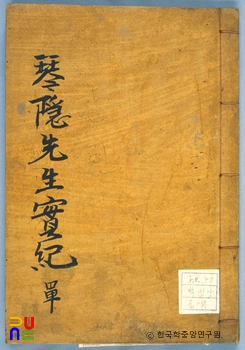 琴隐先生實紀 單
© 한국학중앙연구원